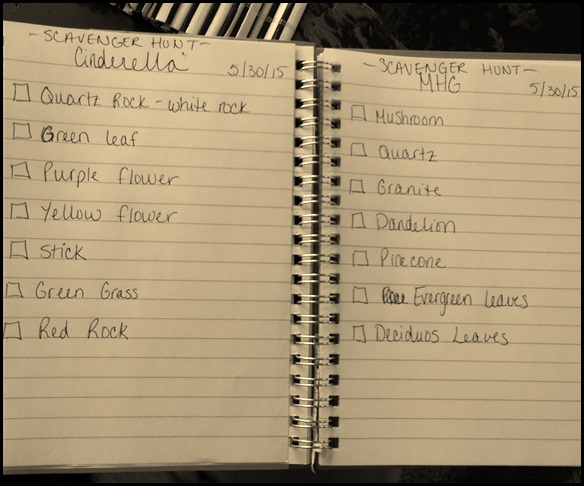 - SCAVENGER HUNT -
Cinderella
5/30/15
Quartz Rock - white rock
Green leaf
Purple flower
Yellow flower
Stick
Green Grass
Red Rock
- SCAVENGER HUNT -
MHG
5/30/15
Mushroom
Quartz
Granite
Dandelion
Pinecone
Evergreen leaves
Deciduos Leaves